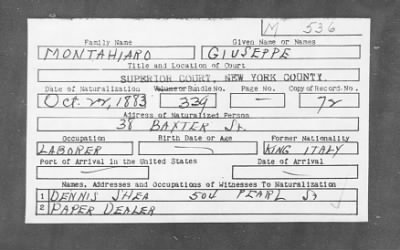 M 536
Family Name Given Name or Names
MONTAHIARO GIUSEPPE
Title and Location of Court
SUPERIOR COURT, NEW YORK COUNTY.
Date of Naturalization Volume or Bundle No. Page No. Copy of Record No.
Oct. 22, 1883 339 — 72
Address of Naturalized Person
38 BAXTER St.
Occupation Birth Date or Age Former Nationality
LABORER — KING ITALY
Port of Arrival in the United States Date of Arrival
— —
Names, Addresses and Occupations of Witnesses To Naturalization
1 DENNIS SHEA 504 PEARL St
2 PAPER DEALER